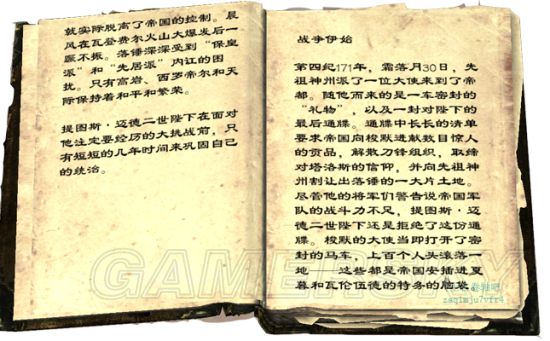 就实际脱离了帝国的控制。晨
风在瓦登费尔火山大爆发后一
蹶不振。落锤深深受到“保皇
派”和“先居派”内讧的困
扰。只有高岩、西罗帝尔和天
际保持着和平和繁荣。
提图斯·迈德二世陛下在面对
他注定要经历的大挑战前，只
有短短的几年时间来巩固自己
的统治。
战争伊始
第四纪171年，霜落月30日，先
祖神州派了一位大使来到了帝
都。随他而来的是一车密封的
“礼物”，以及一封对陛下的
最后通牒。通牒中长长的清单
要求帝国向梭默进献数目惊人
的贡品，解散刀锋组织，取缔
对塔洛斯的信仰，并向先祖神
州割让出落锤的一大片土地。
尽管他的将军们警告说帝国军
队的战斗力不足，提图斯·迈
德二世陛下还是拒绝了这份通
牒。梭默的大使当即打开了密
封的马车，上百个人头滚落一
地　这些都是帝国安插进夏
暮和瓦伦伍德的特务的脑袋
GAMERSKY
zaqimju7vfr4